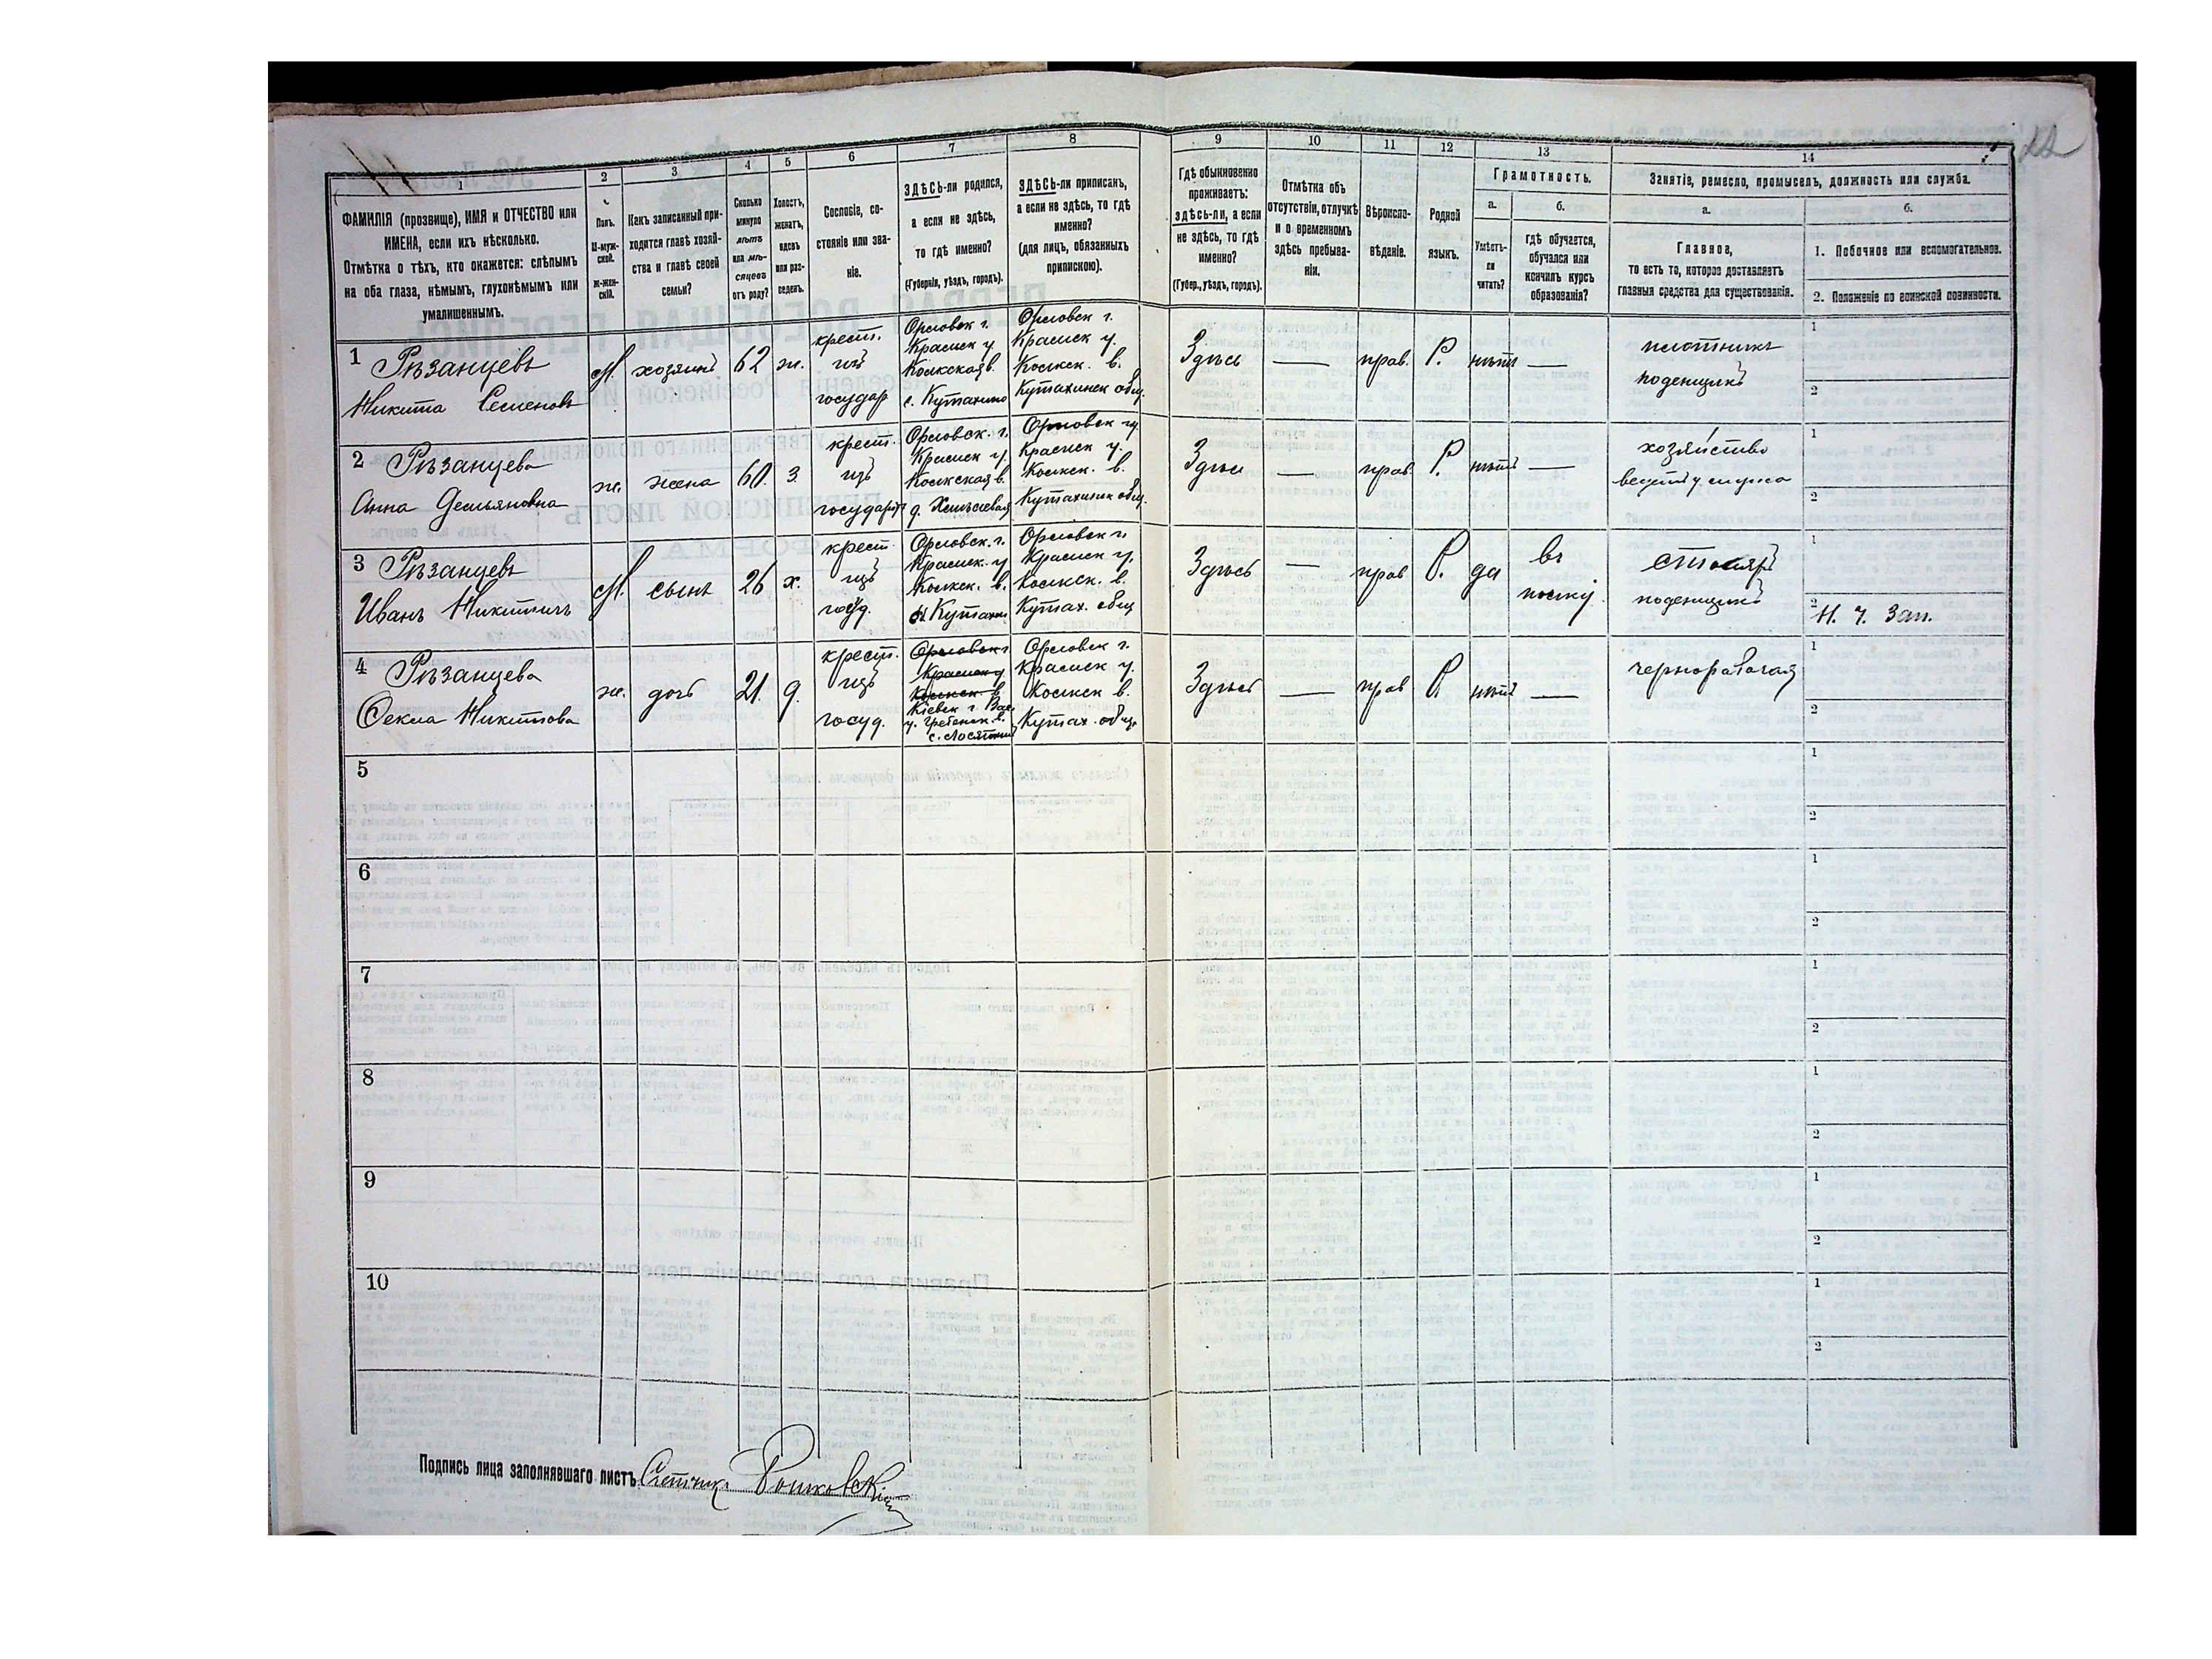 22
1 2 3 4 5 6 7 8 9 10 11 12 13 14
ФАМИЛІЯ (прозвище), ИМЯ и ОТЧЕСТВО или
ИМЕНА, если ихъ нѣсколько.
Отмѣтка о тѣхъ, кто окажется: слѣпымъ
на оба глаза, нѣмымъ, глухонѣмымъ или
умалишеннымъ.
Полъ.
М-муж-
ской.
Ж-жен-
скій.
Какъ записанный при-
ходится главѣ хозяй-
ства и главѣ своей
семьи?
Сколько
минуло
лѣтъ
или мѣ-
сяцевъ
отъ роду?
Холостъ,
женатъ,
вдовъ
или раз-
веденъ.
Сословіе, со-
стояніе или зва-
ніе.
ЗДѢСЬ-ли родился,
а если не здѣсь,
то гдѣ именно?
(Губернія, уѣздъ, городъ).
ЗДѢСЬ-ли приписанъ,
а если не здѣсь, то гдѣ
именно?
(для лицъ, обязанныхъ
припискою).
Гдѣ обыкновенно
проживаетъ:
здѣсь-ли, а если
не здѣсь, то гдѣ
именно?
(Губер., уѣздъ, городъ).
Отмѣтка объ
отсутствіи, отлучкѣ
и о временномъ
здѣсь пребыва-
ніи.
Вѣроиспо-
вѣданіе.
Родной
языкъ.
Грамотность.
а.
Умѣетъ-
ли
читать?
б.
гдѣ обучается,
обучался или
кончилъ курсъ
образованія?
Занятіе, ремесло, промыселъ, должность или служба.
а.
Главное,
то есть то, которое доставляетъ
главныя средства для существованія.
б.
1. Побочное или вспомогательное.
2. Положеніе по воинской повинности.
1 Рѣзанцевъ
Никита Семеновъ
М. хозяинъ 62 ж.
крест.
изъ
государ
Орловск г.
Красиск у
Коикская в.
с. Кутахино
Орловск г.
Красиск у.
Коикск. в.
Кутахинск общ.
Здѣсь — прав. Р. нѣтъ —
плотникъ
поденщикъ
1
2
2 Рѣзанцева
Анна Демьяновна
ж. жена 60 з.
крест.
изъ
государ
Орловск. г.
Красиск у.
Коикская в.
Орловск г.
Красиск у.
Коикск. в.
Кутахинск общ.
Здѣсь — прав. Р. нѣтъ —
хозяйство
ведетъ у мужа
1
2
3 Рѣзанцевъ
Иванъ Никитичъ
М. сынъ 26 х.
крест
изъ
госуд.
Орловск. г.
Красиск. у
Коикск. в.
Кутахи
Орловск г.
Красиск у.
Коикск. в.
Кутах. общ
Здѣсь — прав Р. да
въ
полку
столяръ
поденщикъ
1
2 Н. Ч. Зап.
4 Рѣзанцева
Ѳекла Никитова
ж. дочь 21. д.
крест.
изъ
госуд.
Орловск г
Красиск у
Коикск. в
Кіевск г. Вас.
у. Гребенск. в.
Орловск г.
Красиск у.
Коикск в.
Кутах. общ.
Здѣсь — прав Р нѣтъ —
чернорабочая
1
2
5
1
2
6
1
2
7
1
2
8
1
2
9
1
2
10
1
2
Подпись лица заполнявшаго листъ Счетчикъ